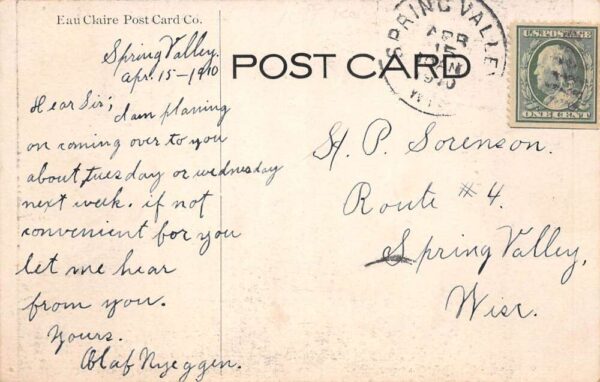 Eau Claire Post Card Co.
Spring Valley.
Apr. 15-1910
Hear Sir;
I am planing
on coming over to you
about, tuesday or wednesday
next week. if not
convenient for you
let me hear
from you.
Yours.
Olaf Nyeggen.
POST CARD
SPRING VALLEY
APR
15
AM
1910
WIS
U.S. POSTAGE
ONE CENT
H. P. Sorenson.
Route #4.
Spring Valley,
Wisc.